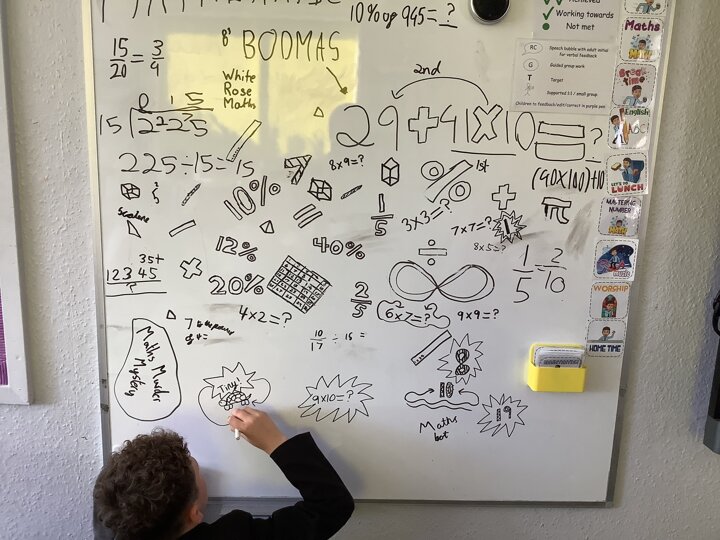 10% of 945 = ?
Achieved
Working towards
Not met
RC Speech bubble with adult initial for verbal feedback
G Guided group work
T Target
Supported 1:1 / small group
Children to feedback/edit/correct in purple pen
Maths
Break time
English
ABC
LET'S GO LUNCH
MASTERING NUMBER
MUSIC
WORSHIP
HOME TIME
15/20 = 3/4
B' BODMAS
White
Rose
Maths
2nd
29 + 41 × 10 = ?
1st
0 1 5
15 225
225 ÷ 15 = 15
8 × 9 = ?
(90×100)+10
10%
1/5
3 × 3 = ?
7 × 7 = ?
1
8 × 5 = ?
Scalene
12%
40%
÷
1/5 = 2/10
35+
12345
?
20%
2/5
4 × 2 = ?
6² × 7 = ?
9 × 9 = ?
10/17 ÷ 15 =
Maths Murder Mystery
Tiny!
9×10=?
8
10
19
Maths
bot